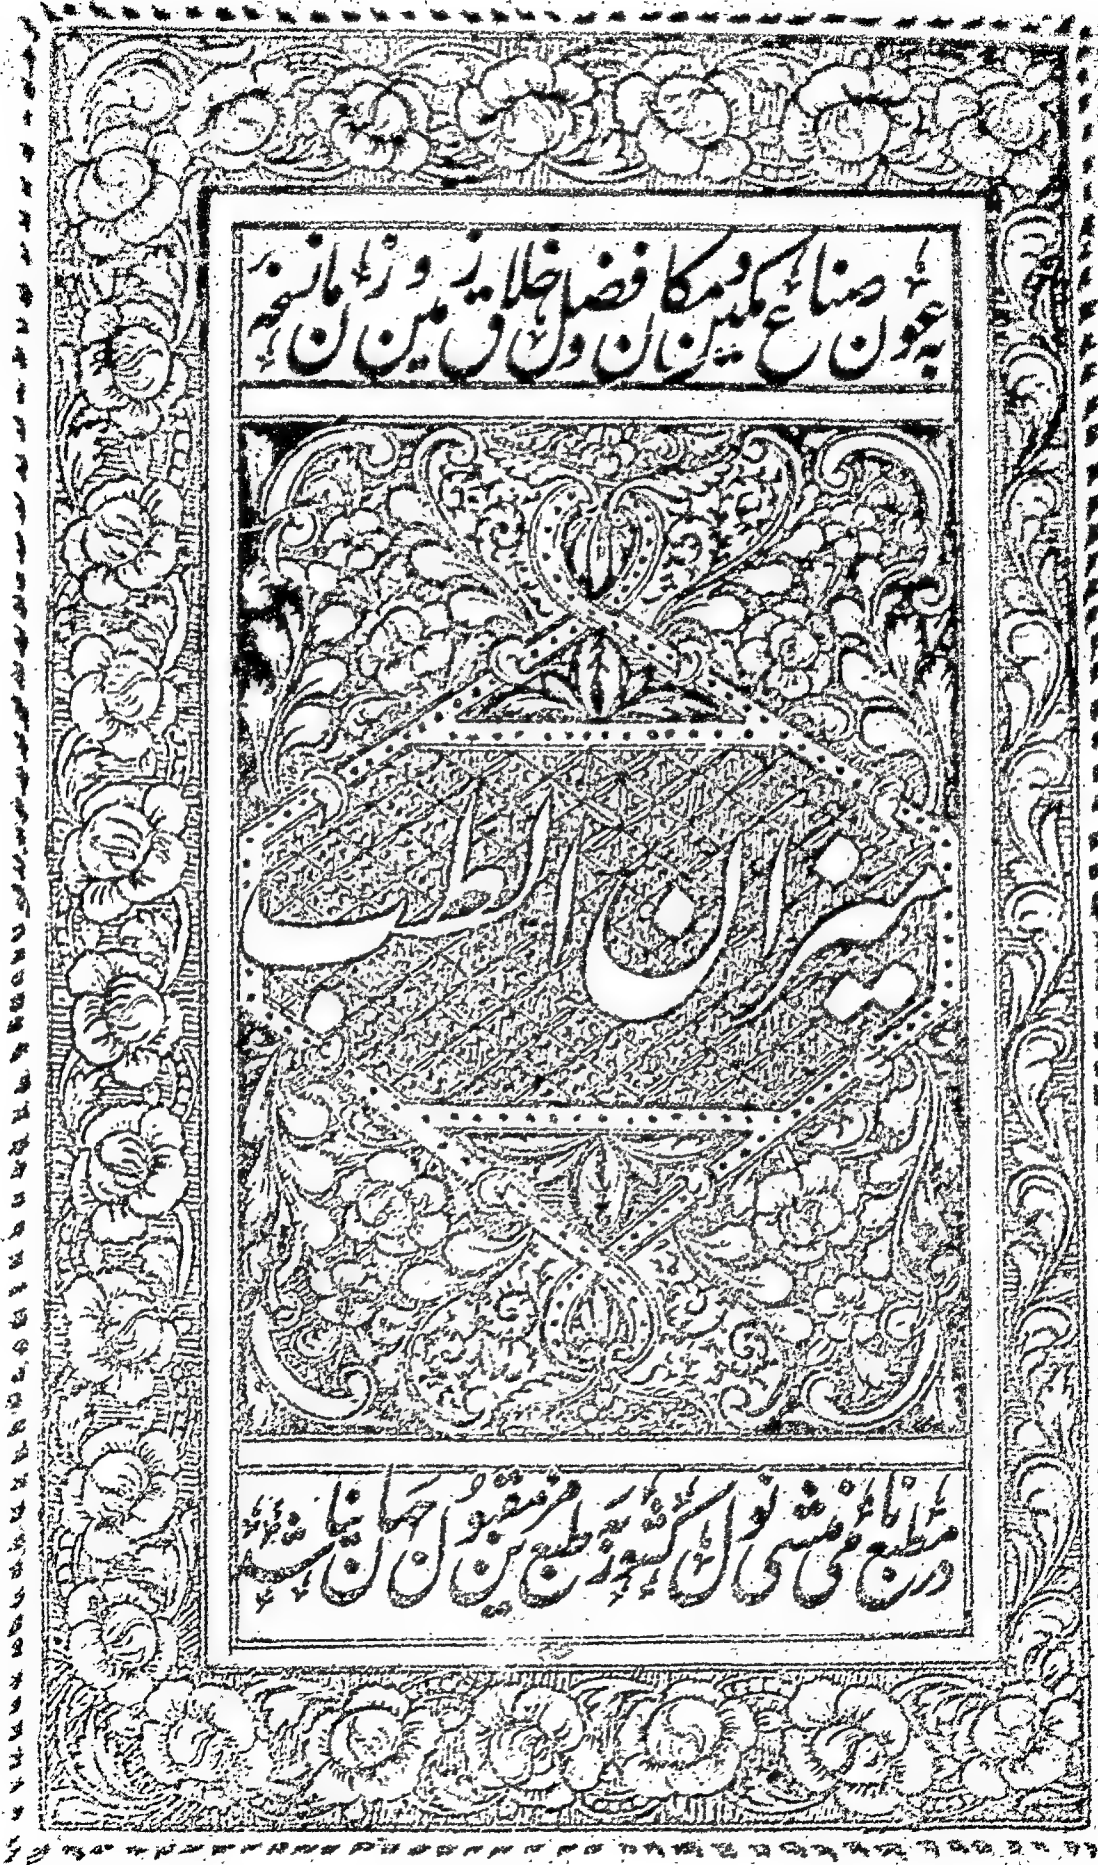 بعون صناع مکین و مکان و فضل خلاق زمین و زمان نسخه
میزان الطب
در مطبع نامی منشی نول کشور طبع مزین مقبول جهان